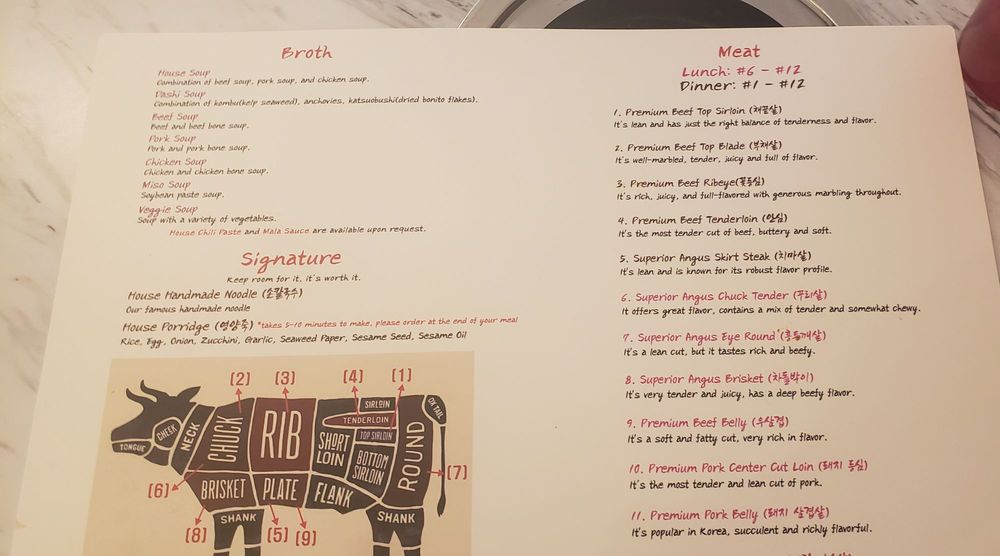 Broth
House Soup
Combination of beef soup, pork soup, and chicken soup.
Dashi Soup
Combination of kombu(kelp seaweed), anchovies, katsuobushi(dried bonito flakes).
Beef Soup
Beef and beef bone soup.
Pork Soup
Pork and pork bone soup.
Chicken Soup
Chicken and chicken bone soup.
Miso Soup
Soybean paste soup.
Veggie Soup
Soup with a variety of vegetables.
House Chili Paste and Mala Sauce are available upon request.
Signature
Keep room for it, it's worth it.
House Handmade Noodle (손칼국수)
Our famous handmade noodle
House Porridge (영양죽) *takes 5-10 minutes to make, please order at the end of your meal
Rice, Egg, Onion, Zucchini, Garlic, Seaweed Paper, Sesame Seed, Sesame Oil
[2] [3] [4] [1]
TONGUE
CHEEK
NECK
CHUCK
RIB
SHORT LOIN
SIRLOIN
TENDERLOIN
TOP SIRLOIN
BOTTOM SIRLOIN
ROUND
OXTAIL
[7]
[6]
BRISKET
PLATE
FLANK
SHANK
SHANK
[8] [5] [9]
Meat
Lunch: #6 - #12
Dinner: #1 - #12
1. Premium Beef Top Sirloin (채끝살)
It's lean and has just the right balance of tenderness and flavor.
2. Premium Beef Top Blade (부채살)
It's well-marbled, tender, juicy and full of flavor.
3. Premium Beef Ribeye(꽃등심)
It's rich, juicy, and full-flavored with generous marbling throughout.
4. Premium Beef Tenderloin (안심)
It's the most tender cut of beef, buttery and soft.
5. Superior Angus Skirt Steak (치마살)
It's lean and is known for its robust flavor profile.
6. Superior Angus Chuck Tender (꾸리살)
It offers great flavor, contains a mix of tender and somewhat chewy.
7. Superior Angus Eye Round (홍두깨살)
It's a lean cut, but it tastes rich and beefy.
8. Superior Angus Brisket (차돌박이)
It's very tender and juicy, has a deep beefy flavor.
9. Premium Beef Belly (우삼겹)
It's a soft and fatty cut, very rich in flavor.
10. Premium Pork Center Cut Loin (돼지 등심)
It's the most tender and lean cut of pork.
11. Premium Pork Belly (돼지 삼겹살)
It's popular in Korea, succulent and richly flavorful.